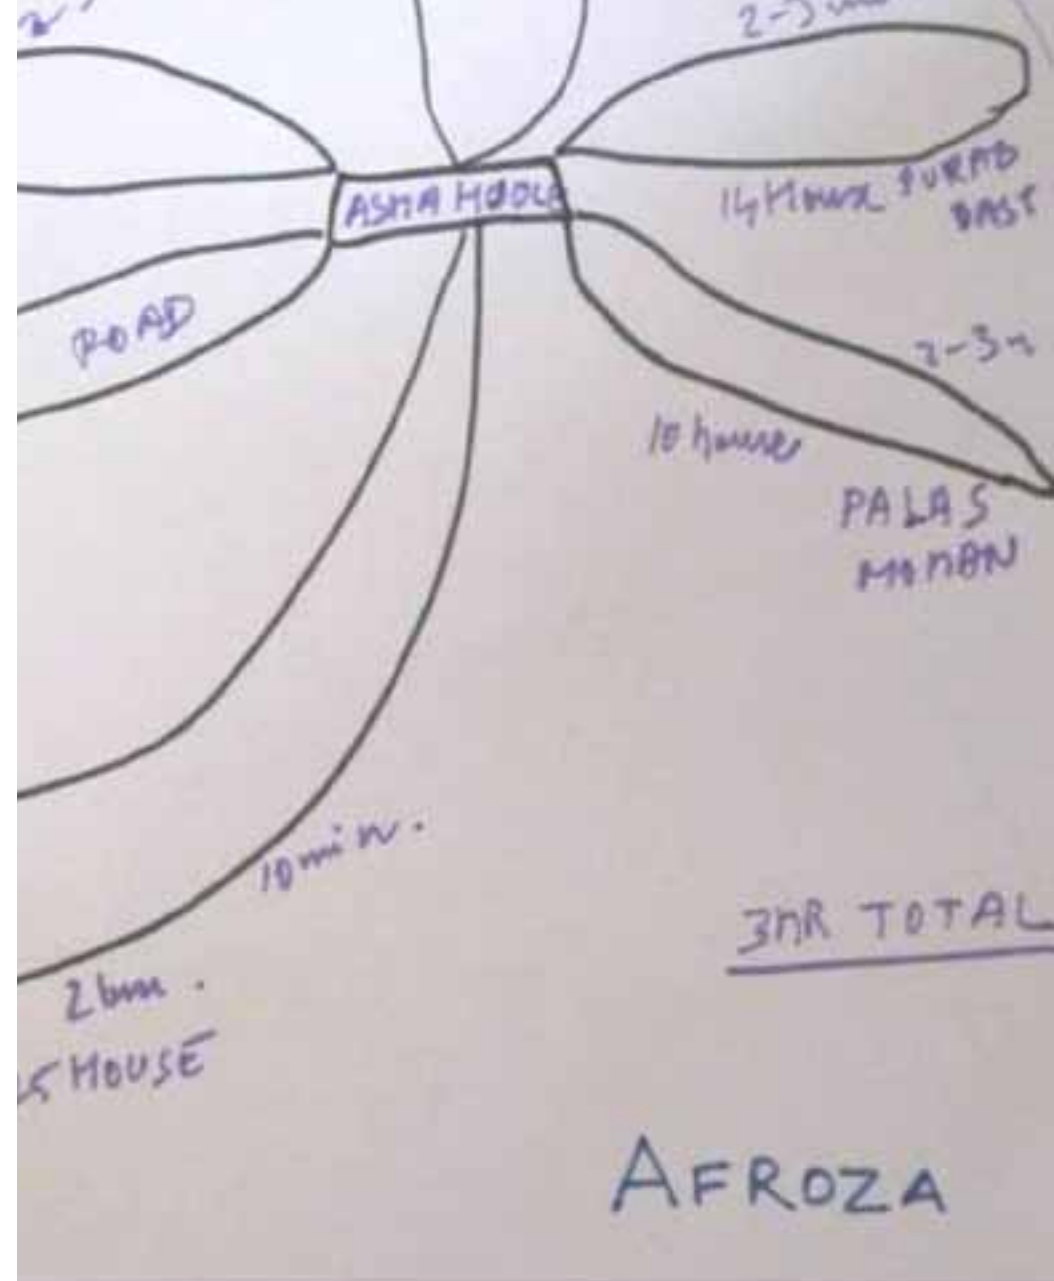 2-3
ASMA MODLE
14 House PURAB
BAST
ROAD
2-3m
10 house
PALAS
MOMAN
10 min.
3HR TOTAL
2 km.
25 HOUSE
AFROZA